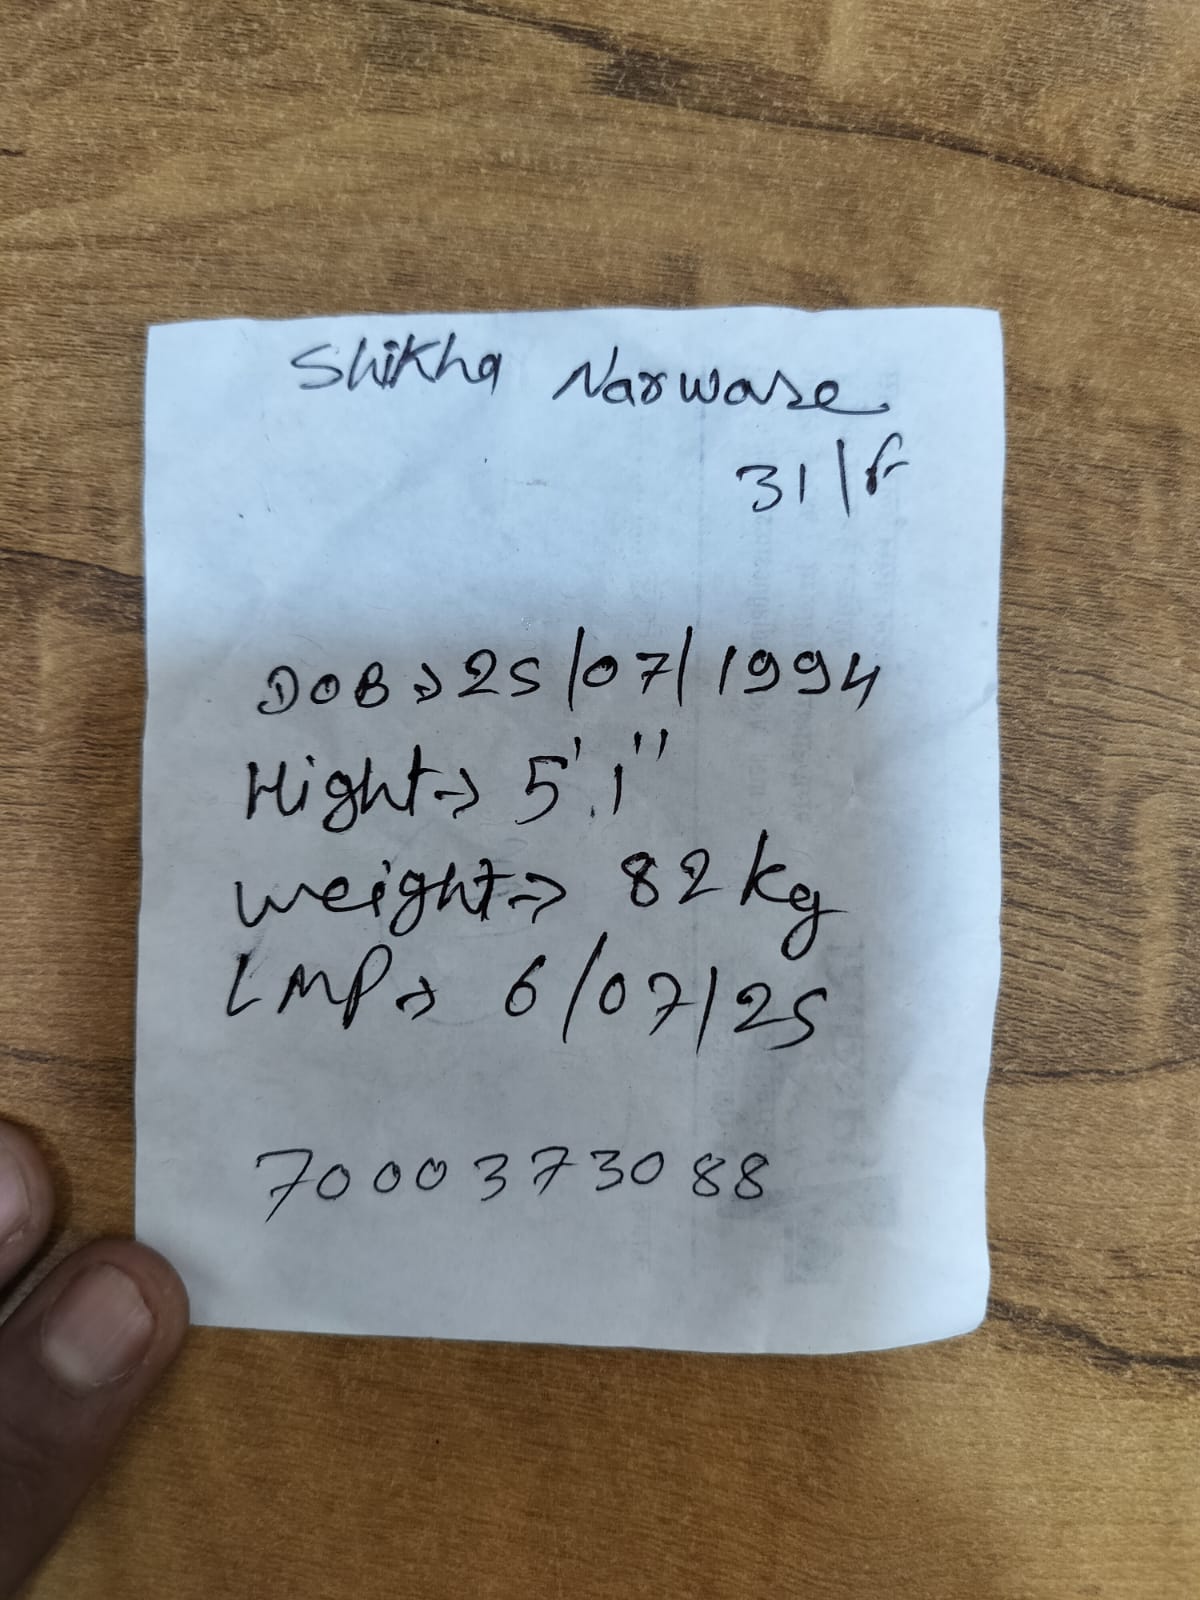 Shikha Narware
31/F
DOB → 25/07/1994
Hight → 5'.1"
weight → 82 kg
LMP → 6/07/25
7000373088